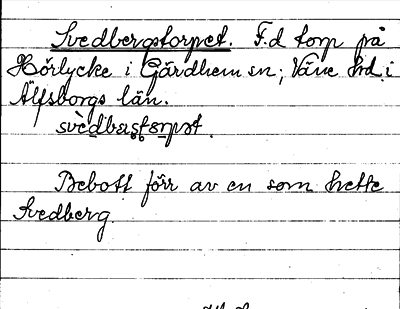 Svedbergstorpet. F.d torp på
Hörlycke i Gärdhem sn; Väne hd i
Älfsborgs län.
svèdbastorpət.
Bebott förr av en som hette
Svedberg.